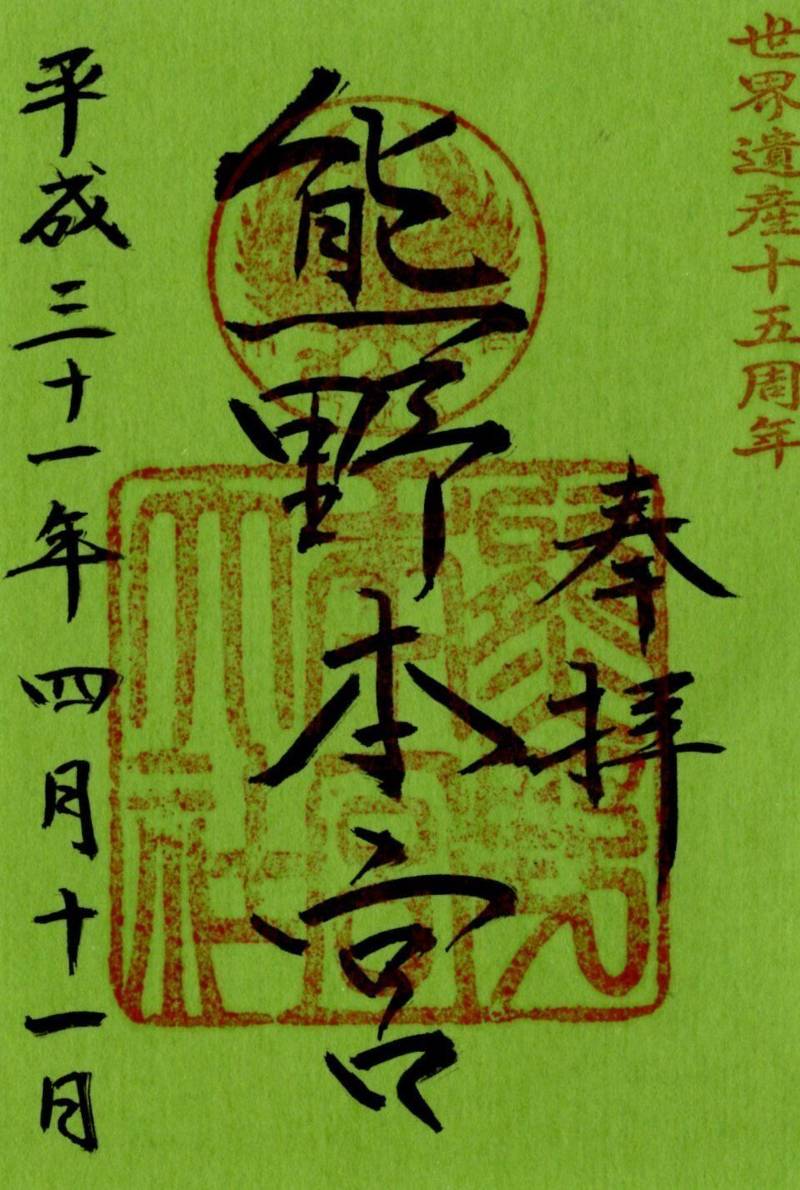 世界遺産十五周年
奉拝
熊野本宮
平成三十一年四月十一日